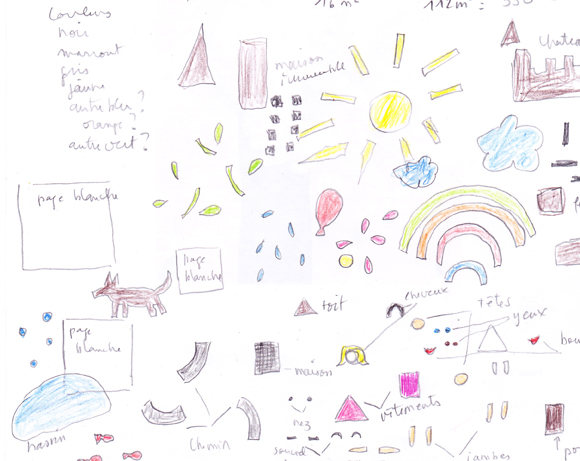 16 m²
112 m² =
couleurs
noir
marront
gris
jaune
autre bleu ?
orange ?
autre vert ?
maison
immeuble
chateau
page blanche
page
blanche
page
blanche
toit
cheveux
têtes
yeux
maison
nez
vêtements
chemin
bassin
sourcil
jambes